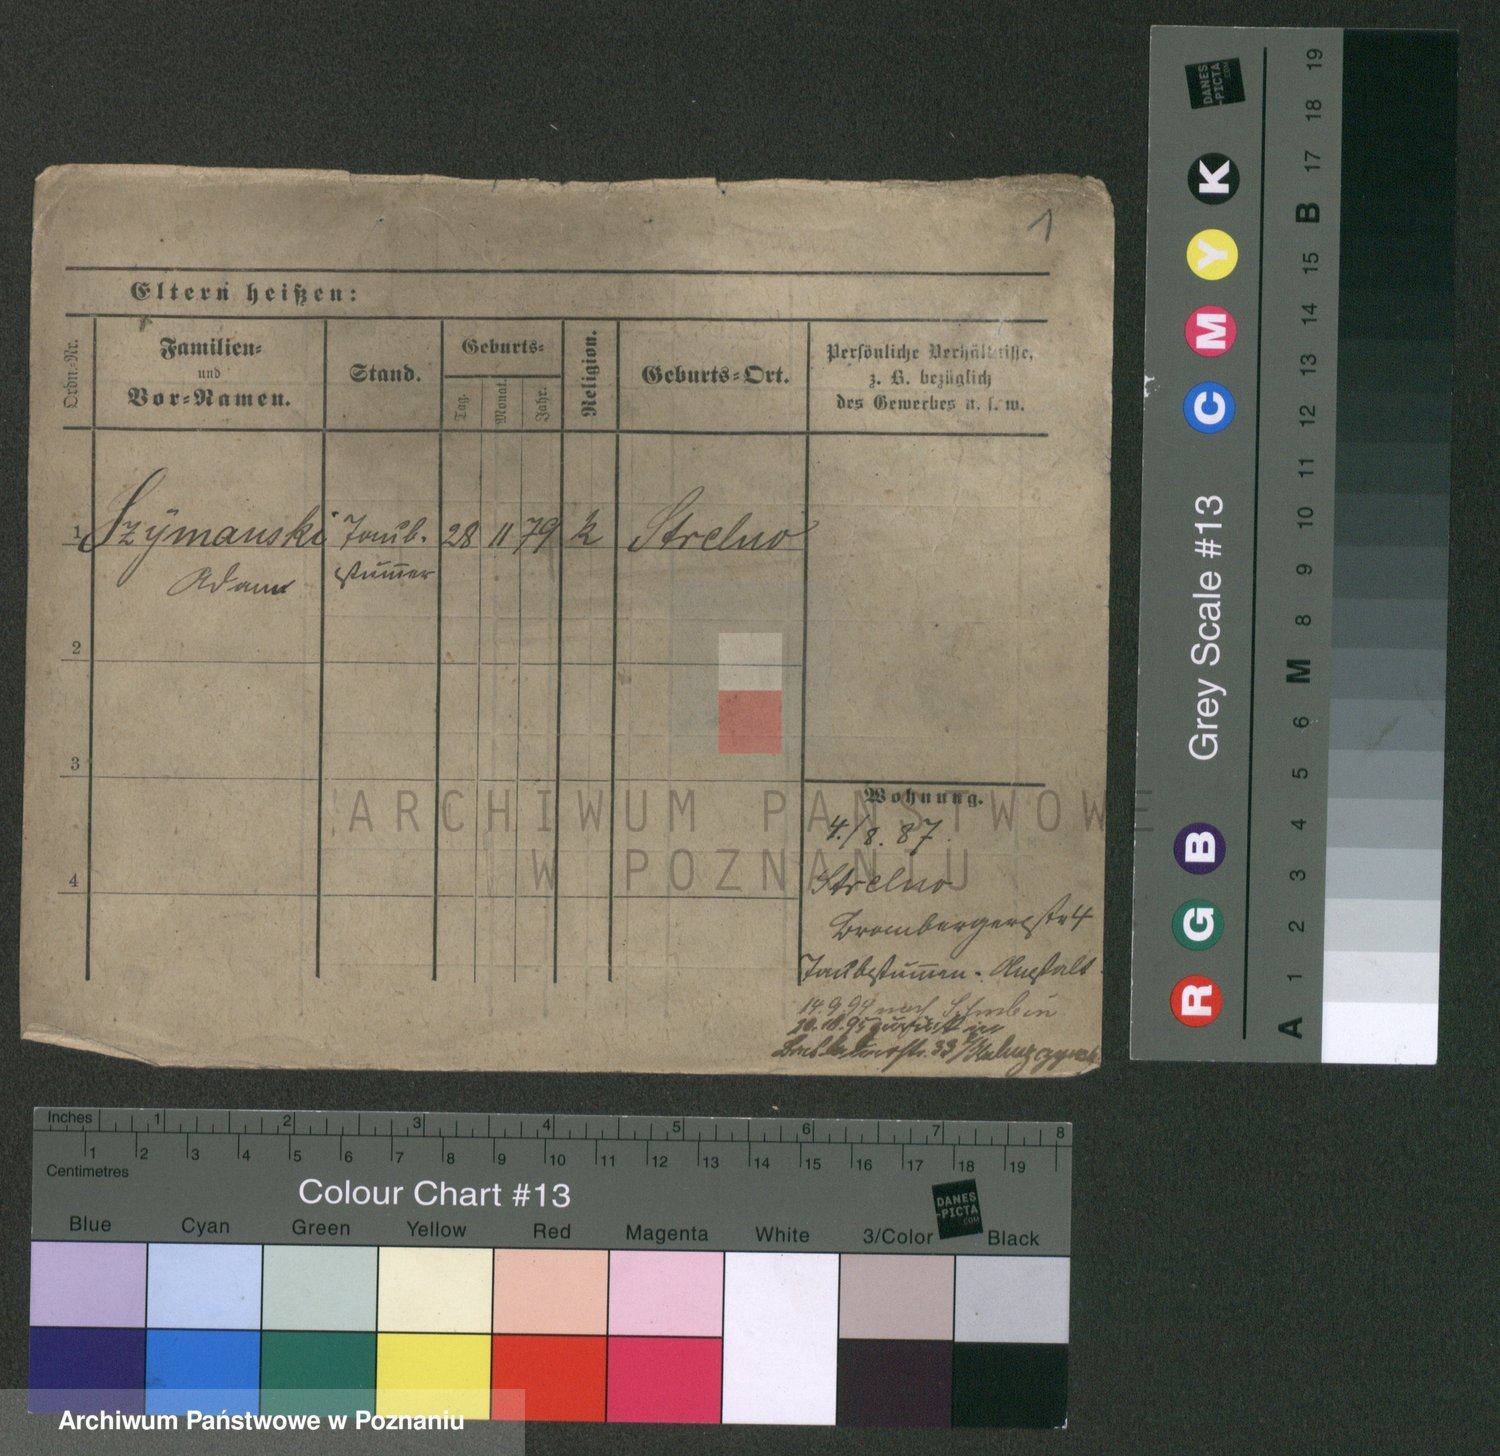 1
Eltern heißen:
Ordn.-Nr.
Familien-
und
Vor-Namen.
Stand.
Geburts-
Tag.
Monat.
Jahr.
Religion.
Geburts-Ort.
Persönliche Verhältnisse,
z. B. bezüglich
des Gewerbes u. s. w.
1 Szÿmanski Taub- 28 11 79 k Strelno
Adam stum̅er
2
3
4
Wohnung.
4./8. 87.
Strelno
Brombergerstr 4
Taubstum̅en-Anstalt
14.9.94 nach Schubin
zurück in
ARCHIWUM PAŃSTWOWE
W POZNANIU
DANES
-PICTA
.COM
R G B C M Y K
Grey Scale #13
A 1 2 3 4 5 6 M 8 9 10 11 12 13 14 15 B 17 18 19
Inches 1 2 3 4 5 6 7 8
1 2 3 4 5 6 7 8 9 10 11 12 13 14 15 16 17 18 19
Centimetres
Colour Chart #13
DANES
-PICTA
.COM
Blue Cyan Green Yellow Red Magenta White 3/Color Black
Archiwum Państwowe w Poznaniu